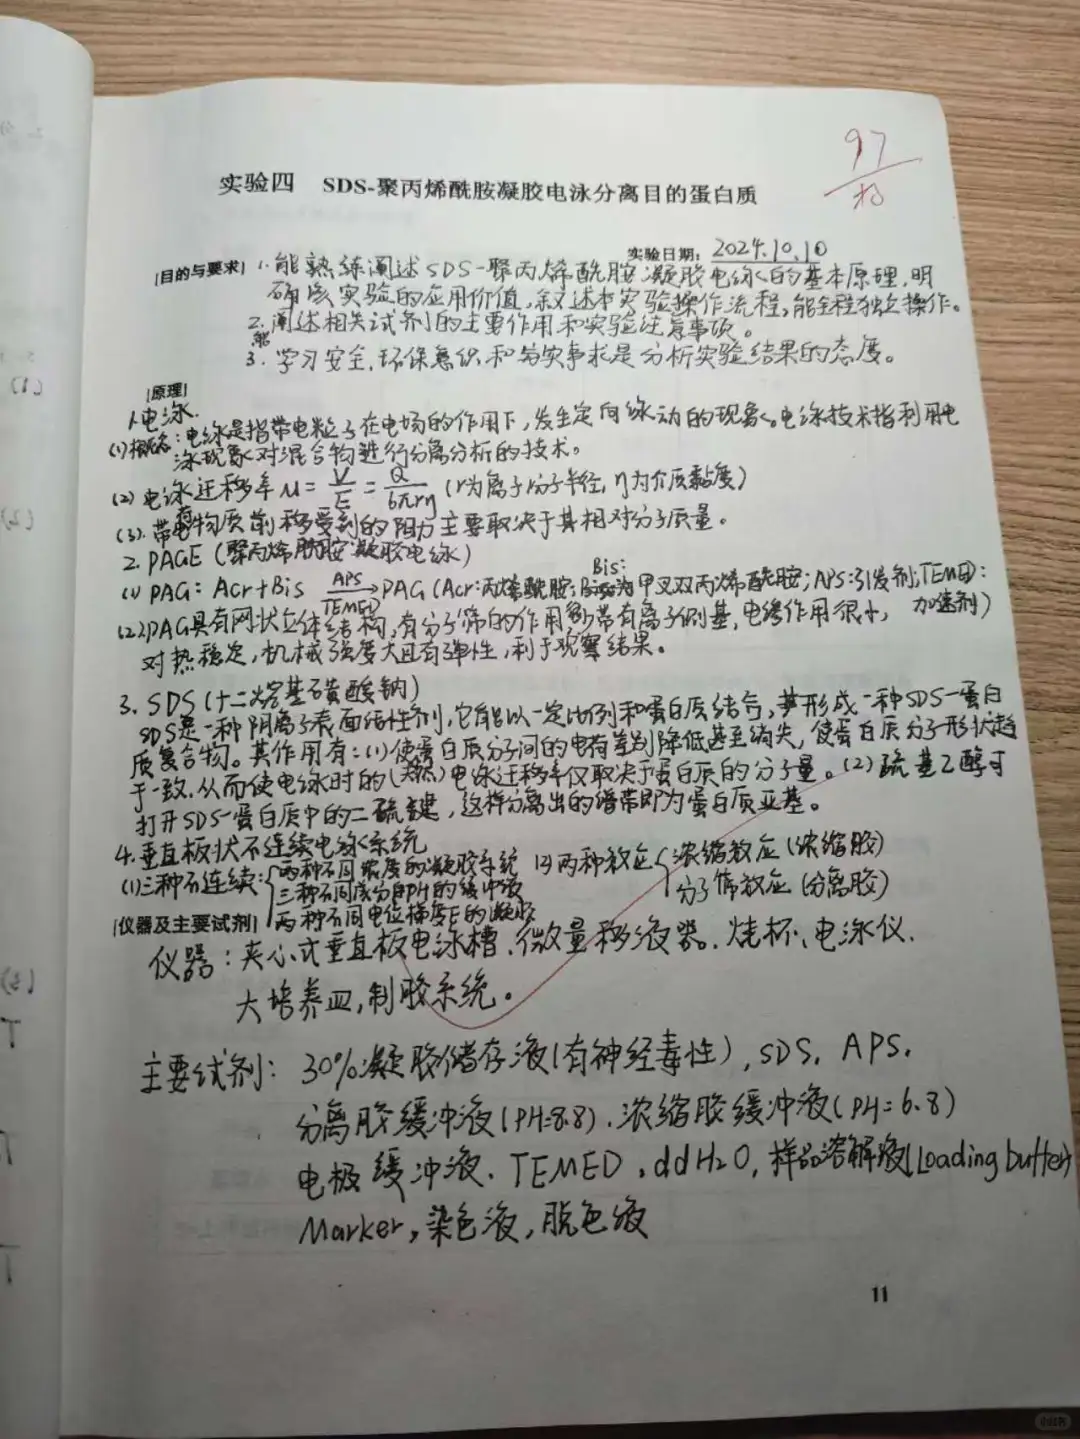 97
实验四 SDS-聚丙烯酰胺凝胶电泳分离目的蛋白质
实验日期：2024.10.10
|目的与要求| 1.能熟练阐述SDS-聚丙烯酰胺凝胶电泳的基本原理,明
确该实验的应用价值,叙述本实验操作流程,能全程独立操作。
2.阐述相关试剂的主要作用和实验注意事项。
3.学习安全.环保意识和务实事求是分析实验结果的态度。
|原理|
1.电泳.
(1)概念:电泳是指带电粒子在电场的作用下,发生定向泳动的现象。电泳技术指利用电
泳现象对混合物进行分离分析的技术。
(2)电泳迁移率 u=V/E=Q/6πrη (r为离子分子半径,η为介质黏度)
(3).带电物质前移受到的阻力主要取决于其相对分子质量。
2.PAGE(聚丙烯酰胺凝胶电泳)
(1)PAG: Acr+Bis APS TEMED→PAG(Acr:丙烯酰胺;Bis:甲叉双丙烯酰胺;APS:引发剂;TEMED:
加速剂)
(2)PAG具有网状立体结构,有分子筛的作用,带有离子侧基,电渗作用很小,
对热稳定,机械强度大且有弹性,利于观察结果。
3.SDS(十二烷基磺酸钠)
SDS是一种阴离子表面活性剂,它能以一定比例和蛋白质结合,形成一种SDS-蛋白
质复合物。其作用有:(1)使蛋白质分子间的电荷差别降低甚至消失,使蛋白质分子形状趋
于一致.从而使电泳时的(天然)电泳迁移率仅取决于蛋白质的分子量。(2)巯基乙醇可
打开SDS-蛋白质中的二硫键,这样分离出的谱带即为蛋白质亚基。
4.垂直板状不连续电泳系统
(1)三种不连续:{两种不同浓度的凝胶系统 (2)两种效应{浓缩效应(浓缩胶)
三种不同成分和PH的缓冲液 分子筛效应(分离胶)
|仪器及主要试剂| 两种不同电位梯度E的凝胶
仪器:夹心式垂直板电泳槽.微量移液器.烧杯、电泳仪.
大培养皿,制胶系统。
主要试剂: 30%凝胶储存液(有神经毒性),SDS.APS.
分离胶缓冲液(PH=8.8).浓缩胶缓冲液(PH=6.8)
电极缓冲液.TEMED.ddH₂O,样品溶解液(Loading buffer)
Marker,染色液,脱色液
11
小红书